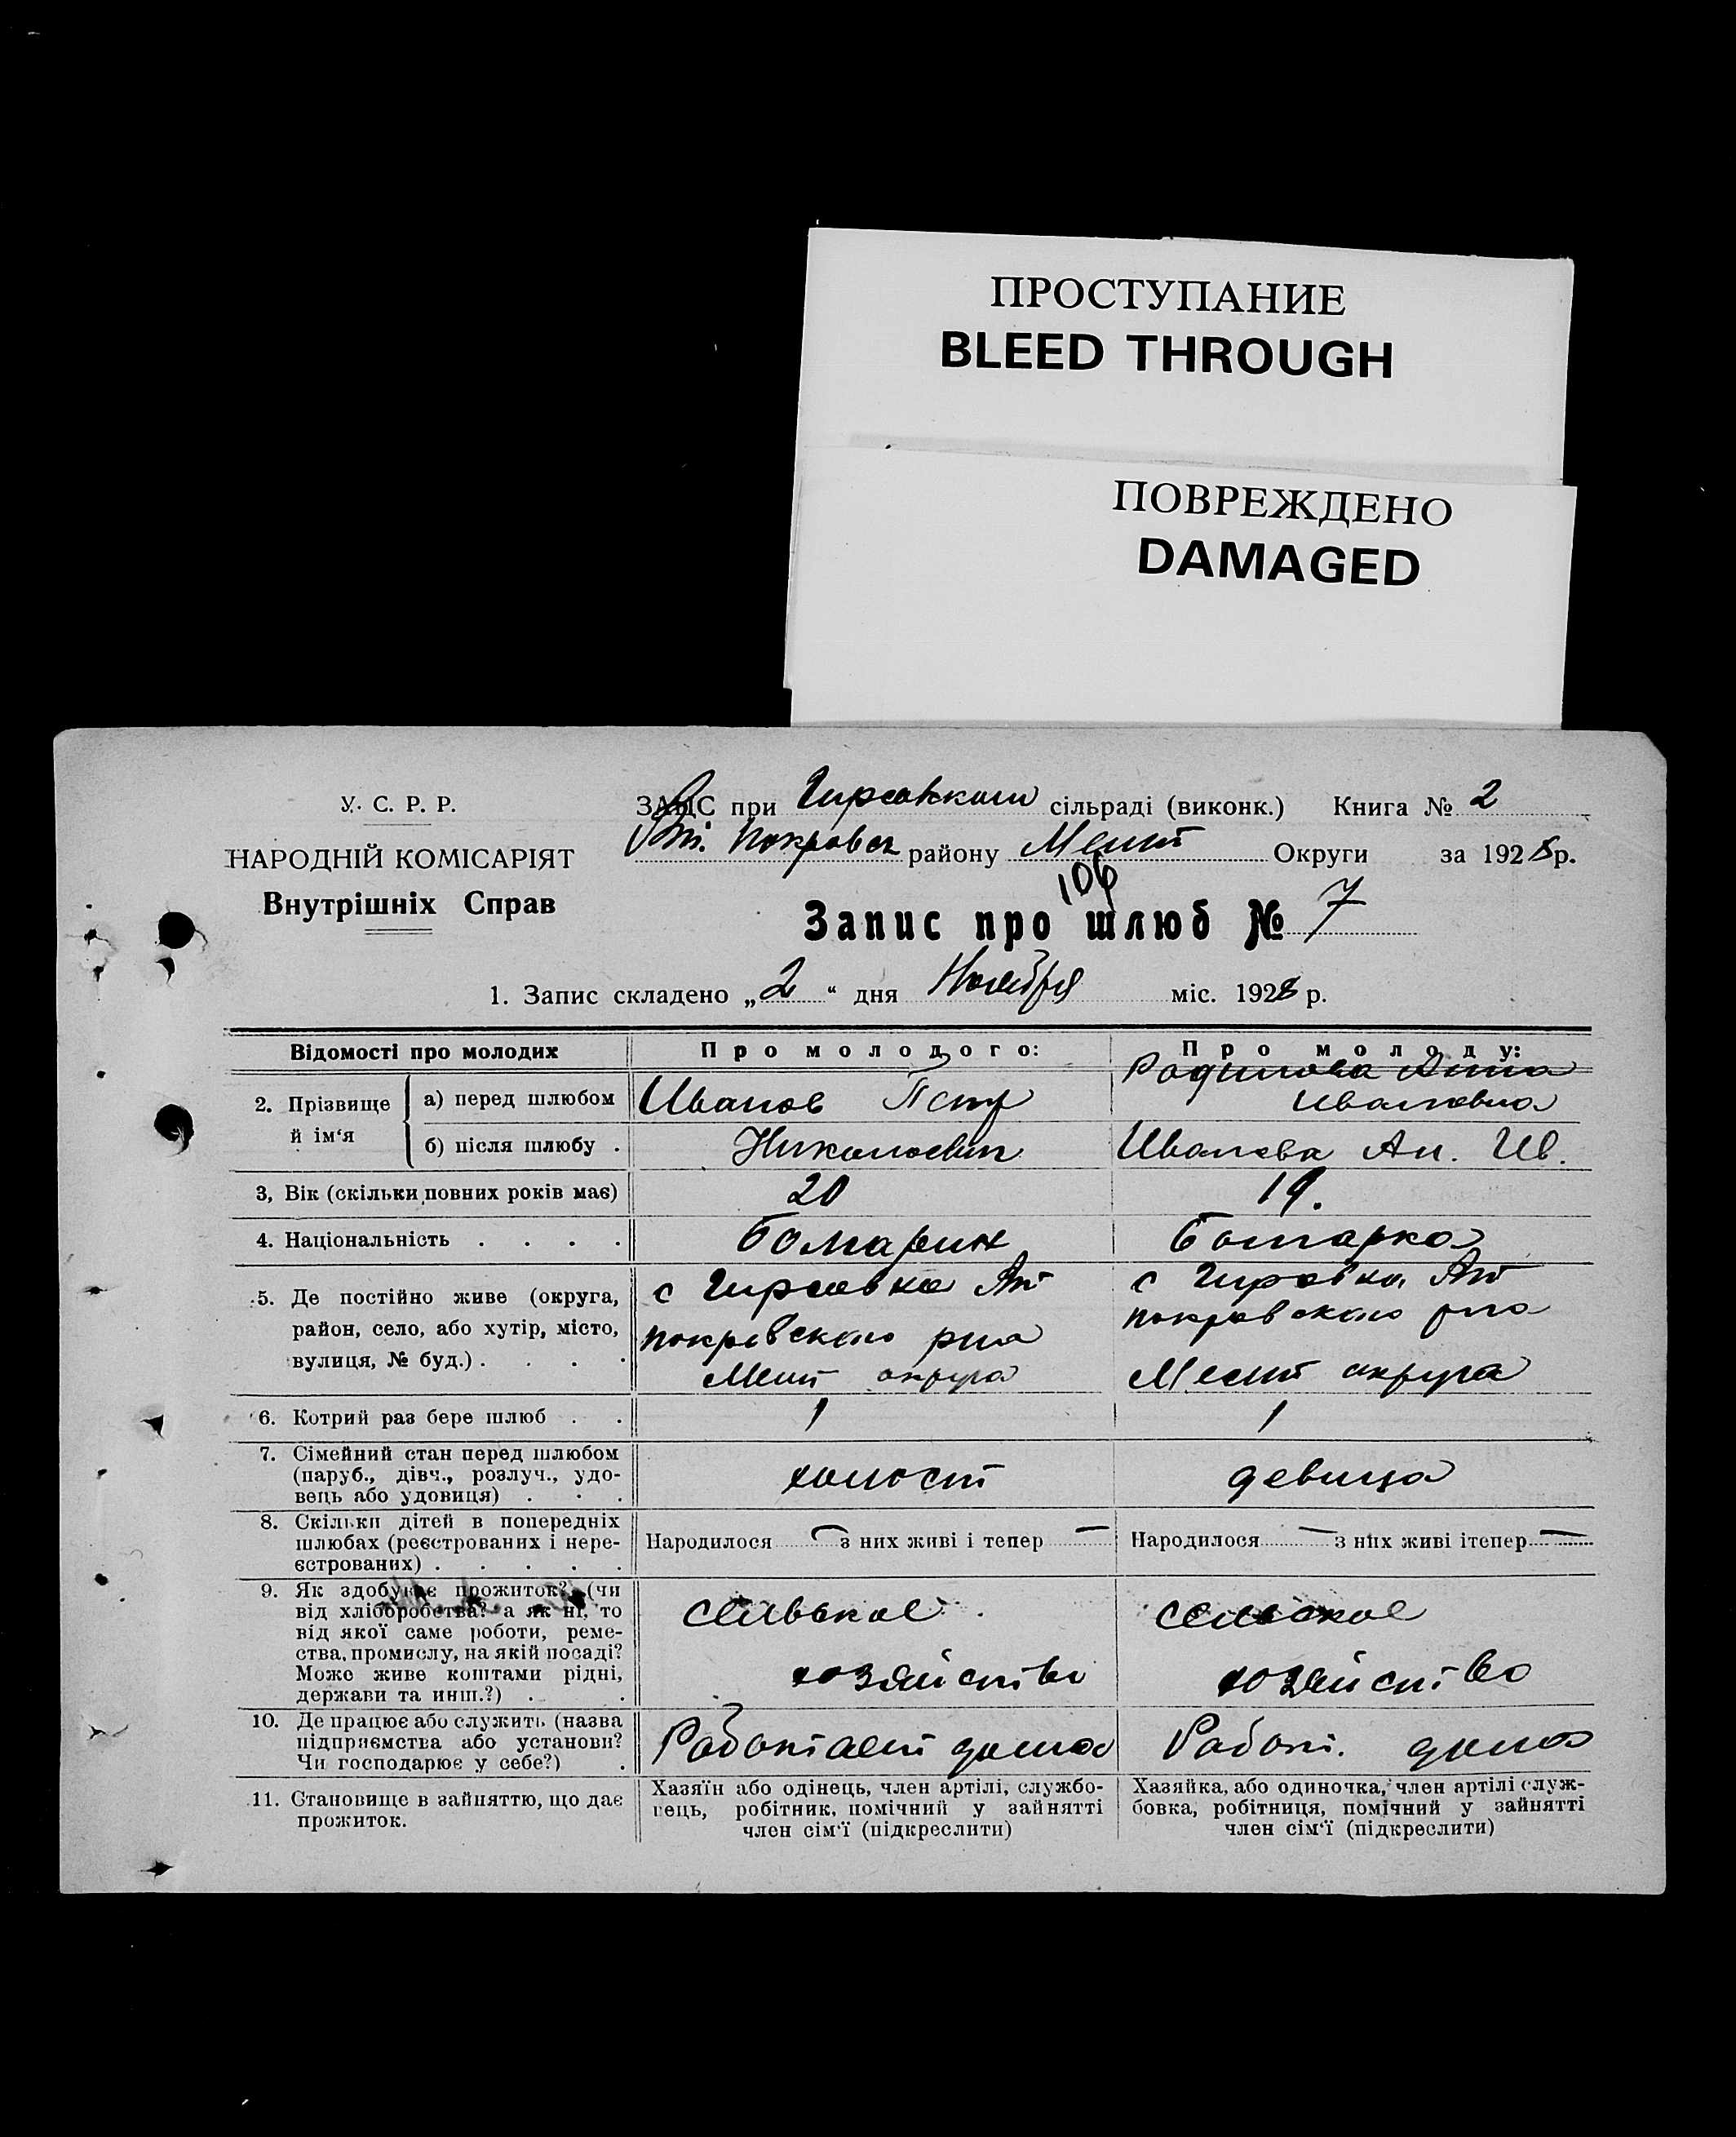 ПРОСТУПАНИЕ
BLEED THROUGH
ПОВРЕЖДЕНО
DAMAGED
У. С. Р. Р.
НАРОДНІЙ КОМІСАРІЯТ
Внутрішніх Справ
ЗАГС при Гирсовском сільраді (виконк.) Книга № 2
покровск району Мелит Округи за 1928 р.
106
Запис про шлюб № 7
1. Запис складено „2“ дня Ноября міс. 1928 р.
Відомості про молодих Про молодого: Про молоду:
2. Прізвище й ім‘я а) перед шлюбом Иванов Петр Радилова Анна Ивановна
б) після шлюбу . Николаевич Иванова Ан. Ив.
3, Вік (скільки повних років має) 20 19.
4. Національність . . . . Болгарин Болгарка
5. Де постійно живе (округа, с Гирсовка Ат с Гировка Ат
район, село, або хутір, місто, покровского рна покровского рна
вулиця, № буд.) . . . . Мелит округа Мелит округа
6. Котрий раз бере шлюб . . 1 1
7. Сімейний стан перед шлюбом
(паруб., дівч., розлуч., удо- холост девица
вець або удовиця) . . .
8. Скільки дітей в попередніх
шлюбах (реєстрованих і нере- Народилося — з них живі і тепер — Народилося — з них живі і тепер —
єстрованих) . . . . .
9. Як здобуває прожиток? (чи
від хліборобства? а як ні, то сельское сельское
від якої саме роботи, реме-
ства, промислу, на якій посаді?
Може живе коштами рідні, хозяйство хозяйство
держави та инш.?) . .
10. Де працює або служить (назва
підприємства або установи? Работает дома Работ. дома
Чи господарює у себе?) .
11. Становище в зайняттю, що дає прожиток. Хазяїн або одінець, член артілі, службо- Хазяйка, або одиночка, член артілі служ-
вець, робітник, помічний у зайнятті бовка, робітниця, помічний у зайнятті
член сім‘ї (підкреслити) член сім‘ї (підкреслити)